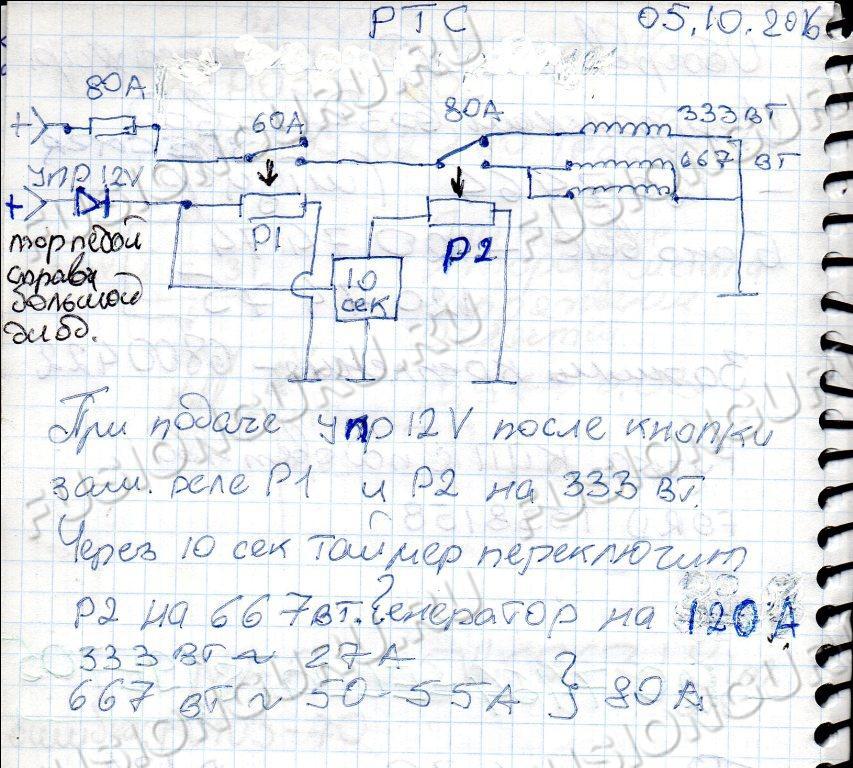 РТС 05.10.2016
80А
60А
80А
333 ВТ
667 ВТ
+
УПР 12V
+
Р1
Р2
10
сек
торпедой
справа
большой
При подаче упр 12V после кнопки
зам. реле Р1 и Р2 на 333 ВТ.
Через 10 сек таймер переключит
Р2 на 667 вт. Генератор на 120 А
333 ВТ ~ 27А
667 ВТ ~ 50-55А } 80 А